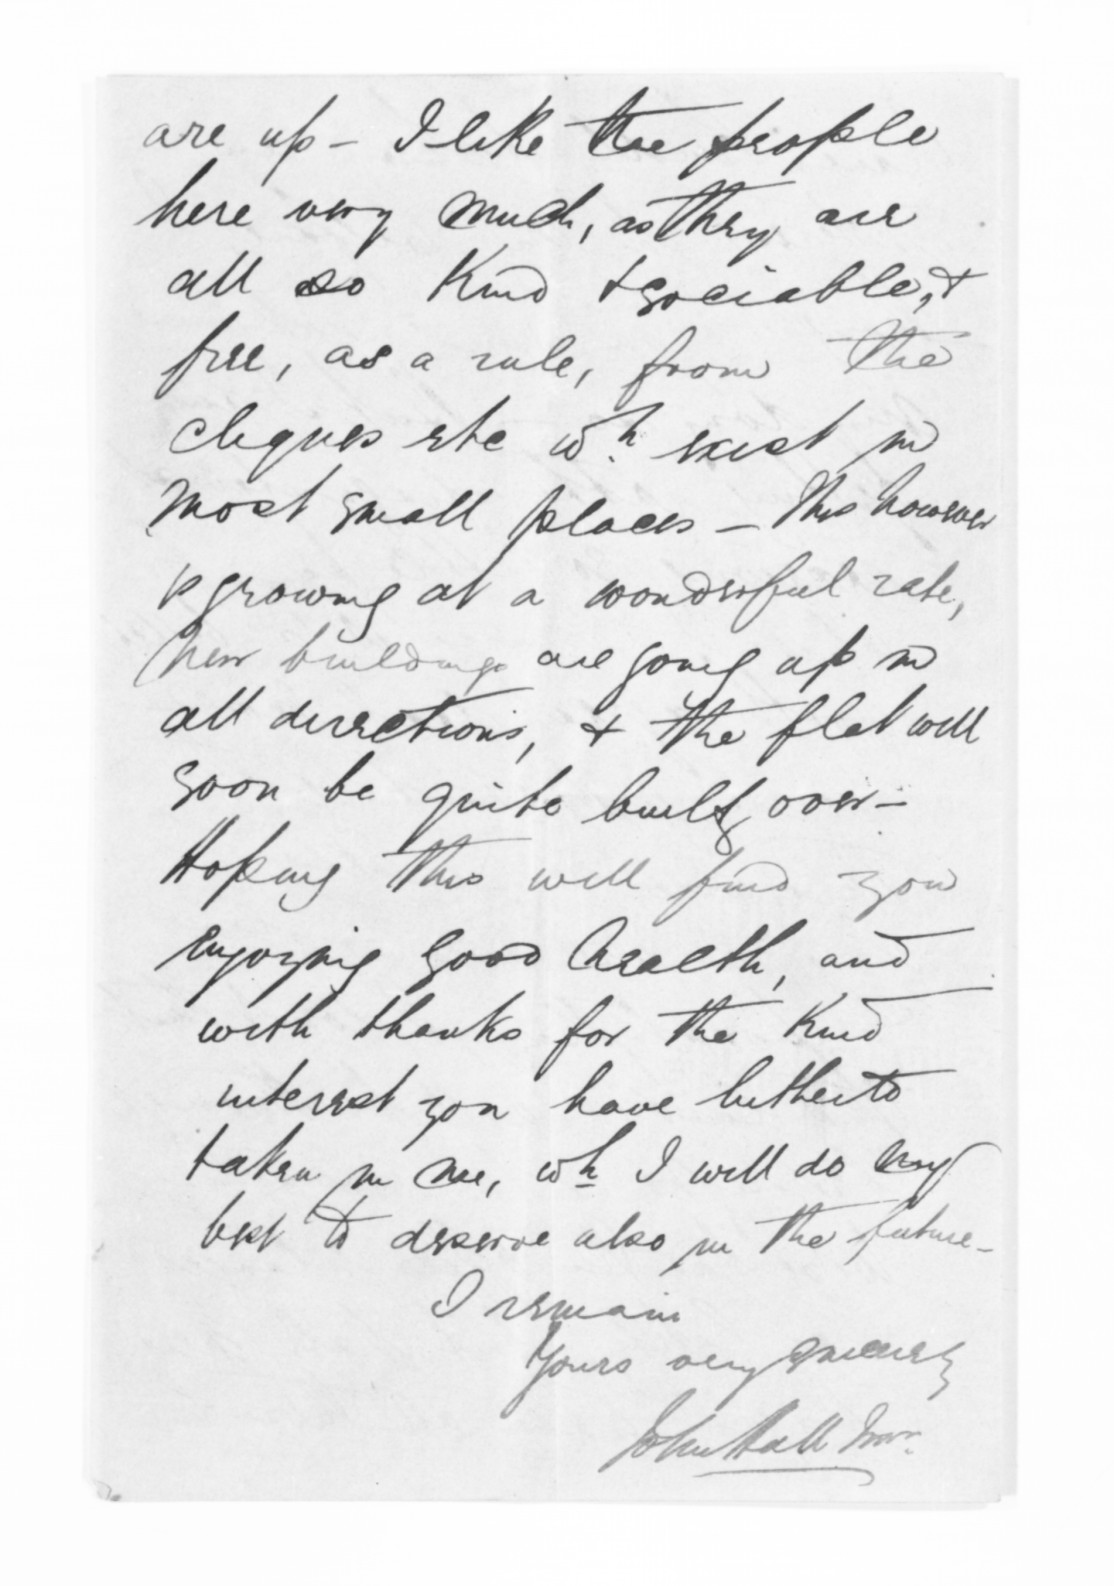 are up – I like the people
here very much, as they are
all so kind & sociable, &
free, as a rule, from the
cliques etc wh. exist in
most small places – This however
is growing at a wonderful rate,
new buildings are going up in
all directions, & the flat will
soon be quite built over –
Hoping this will find you
enjoying good health, and
with thanks for the kind
interest you have hitherto
taken in me, wh I will do my
best to deserve also in the future –
I remain
Yours very sincerely
John Hall Junr.